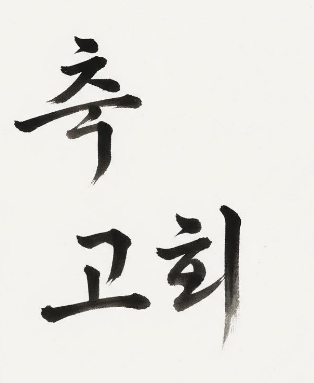 축
고희